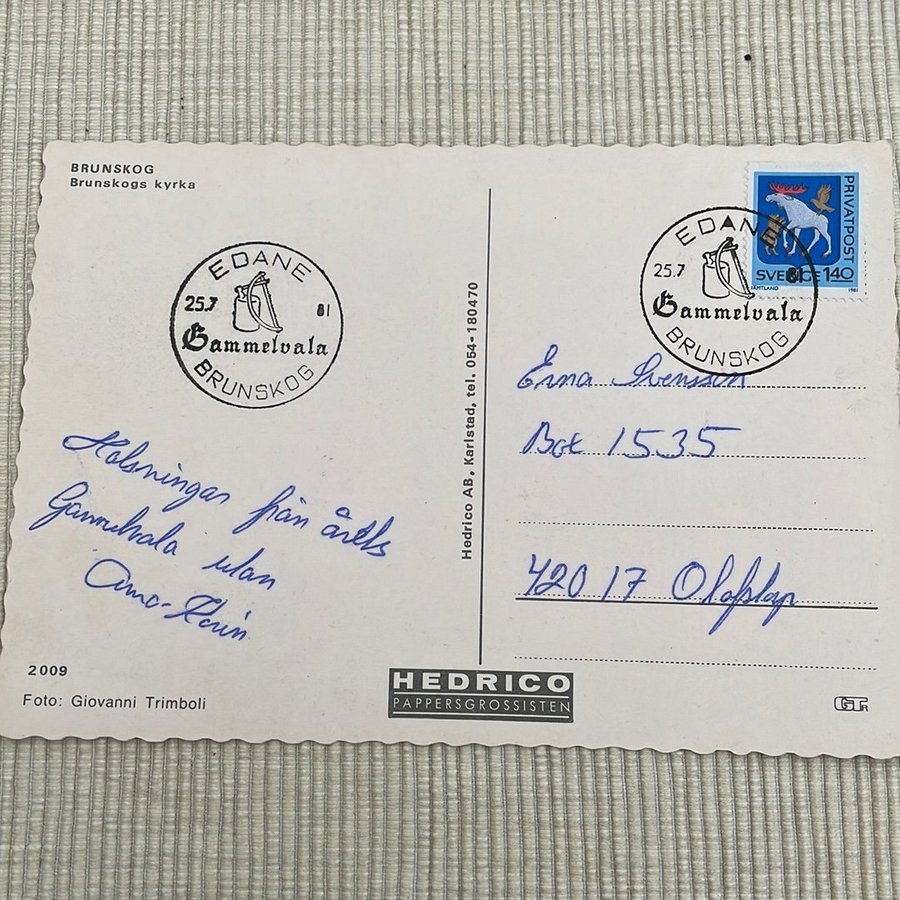 BRUNSKOG
Brunskogs kyrka
EDANE
25.7 81
Gammelvala
BRUNSKOG
Hälsningar från årets
Gammelvala utan
2009
Foto: Giovanni Trimboli
Hedrico AB, Karlstad, tel. 054-180470
HEDRICO
PAPPERSGROSSISTEN
PRIVATPOST
SVERIGE 140
JÄMTLAND 1981
EDANE
25.7 81
Gammelvala
BRUNSKOG
Erna Svensson
Box 1535
420 17 Olofstorp
GT